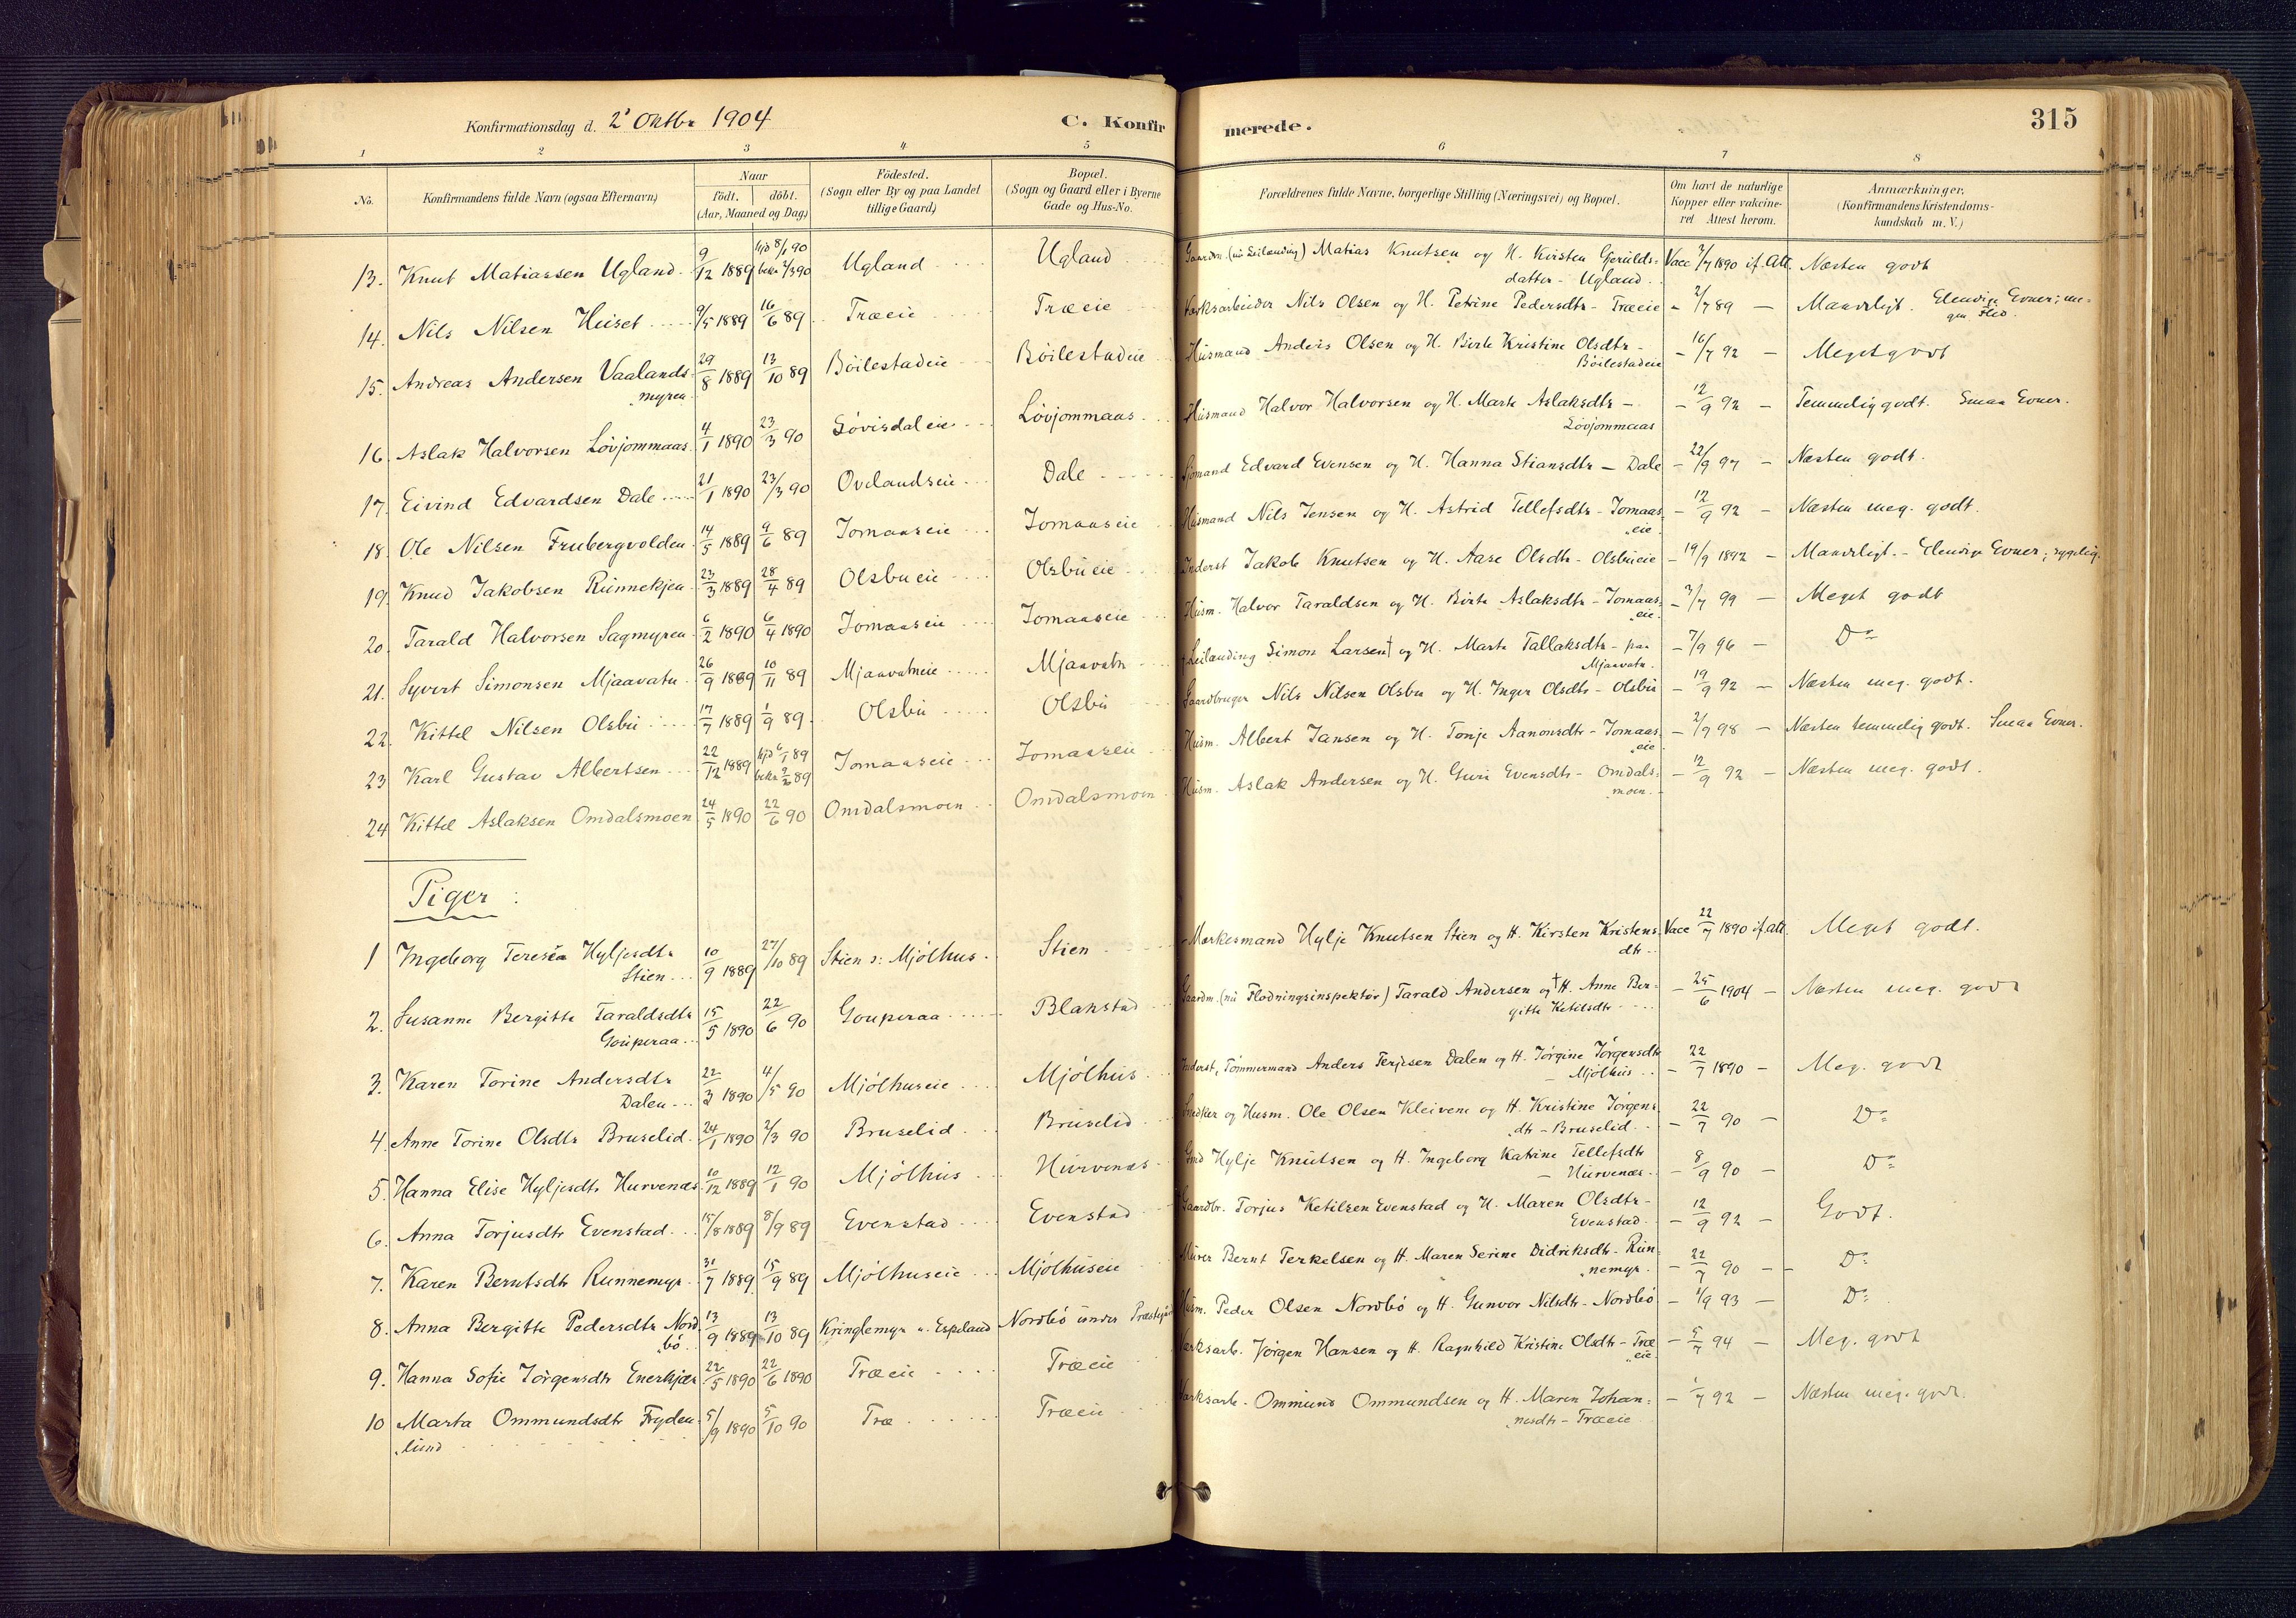 Konfirmationsdag d. 2' Oktbr 1904
C. Konfirmerede.
315
1 2 3 4 5 6 7 8
No.
Konfirmandens fulde Navn (ogsaa Efternavn)
Naar
født. døbt.
(Aar, Maaned og Dag)
Fødested.
(Sogn eller By og paa Landet
tillige Gaard)
Bopæl.
(Sogn og Gaard eller i Byerne
Gade og Hus-No.
Forældrenes fulde Navne, borgerlige Stilling (Næringsvei) og Bopæl.
Om havt de naturlige
Kopper eller vakcine-
ret Attest herom.
Anmærkninger.
(Konfirmandens Kristendoms-
kundskab m. V.)
13. Knut Matiassen Ugland 9/12 1889 hjd 8/1 90 bekr 2/3 90 Ugland Ugland Gaardm. (nu Leilænding) Matias Knutsen og H. Kirsten Gjerulds-
datter - Ugland Vacc 3/7 1890 if. Att. Næsten godt
14. Nils Nilsen Heiset 9/5 1889 16/6 89 Træeie Træeie Værksarbeider Nils Olsen og H. Petrine Pedersdtr - Træeie - 2/7 89 - Maadeligt. Elendige Evner;
15. Andreas Andersen Vaalands-
myren 29/8 1889 13/10 89 Bøilestadeie Bøilestadeie Husmand Anders Olsen og H. Birte Kristine Olsdtr -
Bøilestadeie - 16/7 92 - Meget godt
16. Aslak Halvorsen Løvjommaas 4/1 1890 23/3 90 Løvjommaas Husmand Halvor Halvorsen og H. Marte Aslaksdtr -
Løvjommaas - 12/9 92 - Temmelig godt. Smaa Evner.
17. Eivind Edvardsen Dale 21/1 1890 23/3 90 Ovelandseie Dale Sjømand Edvard Evensen og H. Hanna Stiansdtr - Dale - 22/9 97 - Næsten godt.
18. Ole Nilsen Frubergvolden 14/5 1889 9/6 89 Jomaaseie Jomaaseie Husmand Nils Jensen og H. Astrid Tellefsdtr - Jomaas-
eie - 12/9 92 - Næsten meg. godt.
19. Knud Jakobsen Runnekjen 23/3 1889 28/4 89 Olsbueie Olsbueie Inderst Jakob Knutsen og H. Aase Olsdtr - Olsbueie - 19/9 1892 - Maadeligt. - Elendige Evner; sygelig.
20. Tarald Halvorsen Sagmyren 6/2 1890 6/4 1890 Jomaaseie Jomaaseie Husm. Halvor Taraldsen og H. Birte Aslaksdtr - Jomaas-
eie - 3/7 99 - Meget godt
21. Syvert Simonsen Mjaavatn 26/9 1889 10/11 89 Mjaavatneie Mjaavatn Leilænding Simon Larsen † og H. Marte Tallaksdtr - paa
Mjaavatn. - 7/9 96 - Do
22. Kittel Nilsen Olsbu 17/7 1889 1/9 89 Olsbu Olsbu Gaardbruger Nils Nilsen Olsbu og H. Inger Olsdtr - Olsbu - 19/9 92 - Næsten meg. godt.
23. Karl Gustav Albertsen 22/12 1889 hjd 6/1 89 bekr 2/2 89 Jomaaseie Jomaaseie Husm. Albert Jansen og H. Tonje Aanonsdtr - Jomaas-
eie - 2/9 98 - Næsten temmelig godt. Smaa Evner.
24. Kittel Aslaksen Omdalsmoen 24/5 1890 22/6 90 Omdalsmoen Omdalsmoen Husm. Aslak Andersen og H. Guri Evensdtr - Omdals-
moen. - 12/9 92 - Næsten meg. godt.
Piger:
1 Ingeborg Teresia Hyljesdtr
Stien 10/9 1889 27/10 89 Stien s: Mjølhus Stien Mærkesmand Hylje Knutsen Stien og H. Kirsten Kristens-
dtr Vacc 22/7 1890 if. att. Meget godt.
2. Susanne Bergitte Taraldsdtr
Gouperaa 15/5 1890 22/6 90 Gouperaa Blakstad Gaardm. (nu Flødningsinspektør) Tarald Andersen og † H. Anne Ber-
gitte Ketilsdtr - 25/6 1904 - Næsten meg. godt
3. Karen Torine Andersdtr
Dalen 22/3 1890 4/5 90 Mjølhuseie Mjølhus Inderst, Tømmermand Anders Terjesen Dalen og H. Jørgine Jørgensdtr
- Mjølhus - 22/7 1890 - Meg. godt
4. Anne Torine Olsdtr Bruselid 24/1 1890 2/3 90 Bruselid Bruselid Snedker og Husm. Ole Olsen Kleivene og H. Kristine Jørgens-
dtr - Bruselid - 22/7 90 - Do
5. Hanna Elise Hyljesdtr Hurvenæs 10/12 1889 12/1 90 Mjølhus Hurvenæs Gmd Hylje Knutsen og H. Ingeborg Katrine Tellefsdtr
- Hurvenæs - 8/9 90 - Do
6. Anna Torjusdtr Evenstad 15/8 1889 8/9 89 Evenstad Evenstad Gaardbr. Torjus Ketilsen Evenstad og H. Maren Olsdtr -
Evenstad - 12/9 92 - Godt.
7. Karen Berntsdtr Runnemyr 31/7 1889 15/9 89 Mjølhuseie Mjølhuseie Murer Bernt Terkelsen og H. Maren Serine Didriksdtr - Run-
nemyr - 22/7 90 - Do
8. Anna Bergitte Pedersdtr Nord-
bø 13/9 1889 13/10 89 Kringlemyr u. Espeland Nordbø under Husm. Peder Olsen Nordbø og H. Gunvor Nilsdtr - Nordbø - 1/9 93 - Do
9. Hanna Sofie Jørgensdtr Enerkjær 22/5 1890 22/6 1890 Træeie Træeie Værksarb. Jørgen Hansen og H. Ragnhild Kristine Olsdtr - Træ-
eie - 5/7 94 - Meg. godt
10 Marta Ommundsdtr Fryden-
lund 5/9 1890 5/10 90 Træ Træeie Værksarb. Ommund Ommundsen og H. Maren Johan-
nesdtr - Træeie - 1/7 92 - Næsten meg. godt.